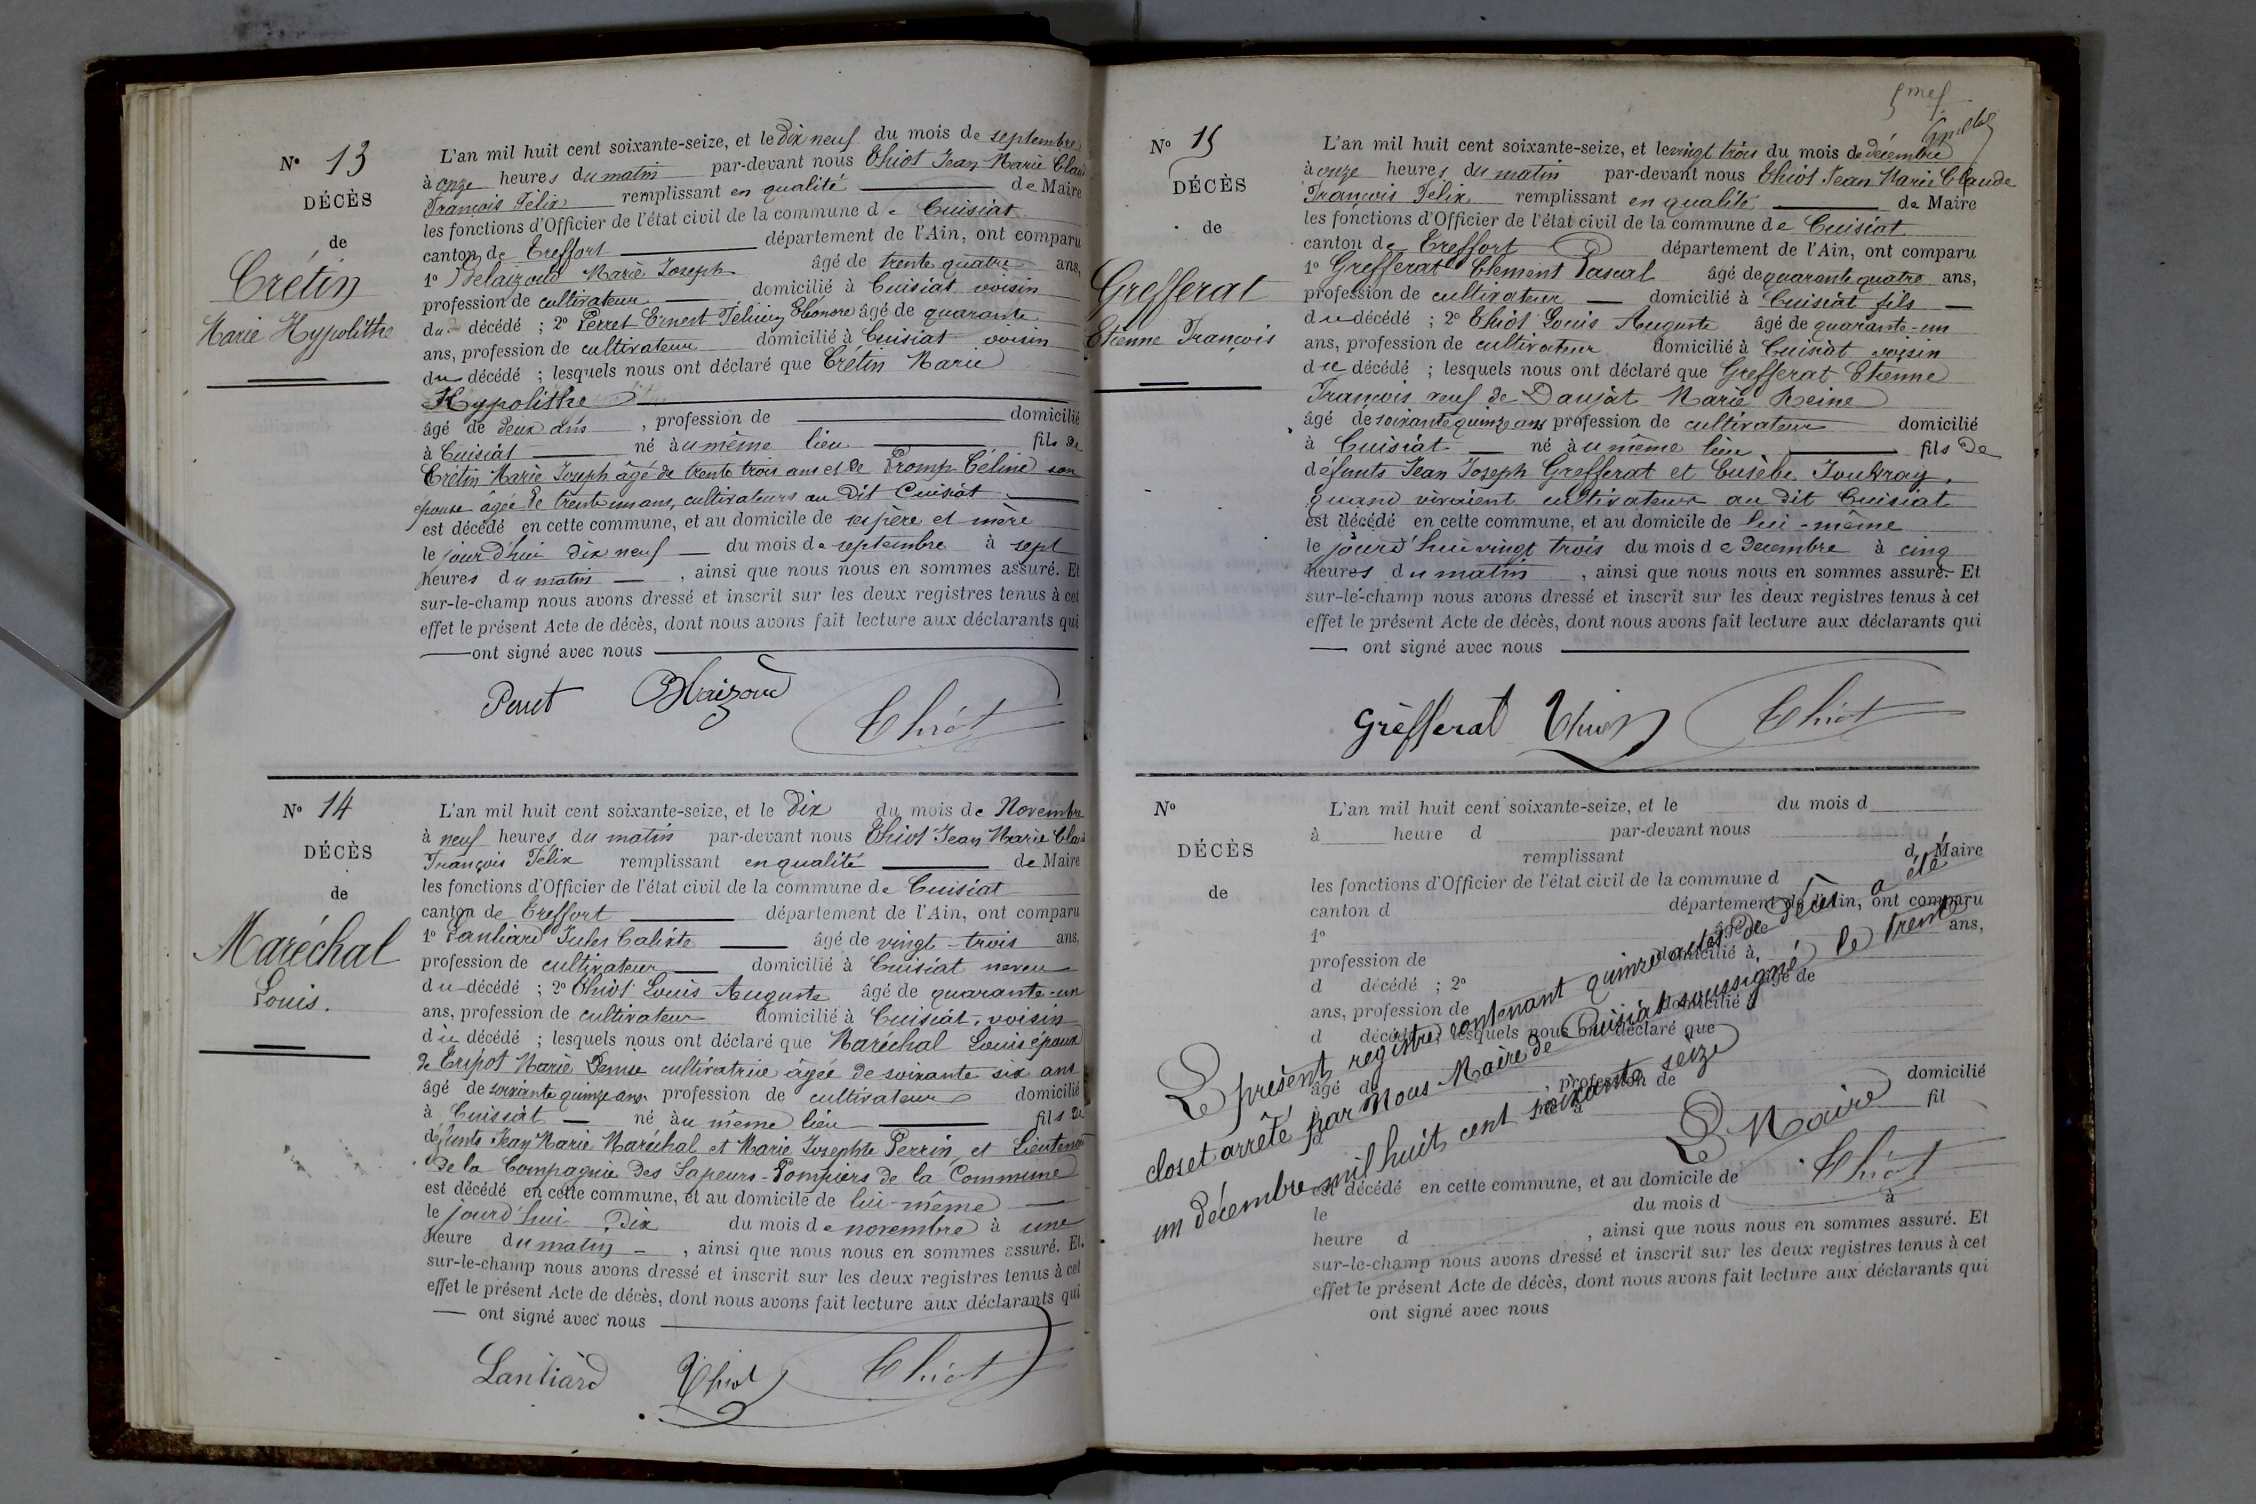 N° 13
DÉCÈS
de
Crétin
Marie Hypolithe
L'an mil huit cent soixante-seize, et le Dix neuf du mois de septembre
à onze heures du matin par-devant nous Thiot Jean Marie Claude
François Félix remplissant en qualité de Maire
les fonctions d'Officier de l'état civil de la commune de Cuisiat
canton de Treffort département de l'Ain, ont comparu
1° Marie Joseph âgé de trente quatre ans,
profession de cultivateur domicilié à Cuisiat voisin
du décédé ; 2° Perret Ernest Eléonore âgé de quarante
ans, profession de cultivateur domicilié à Cuisiat voisin
du décédé ; lesquels nous ont déclaré que Crétin Marie
Hypolithe
âgé de deux ans , profession de domicilié
à Cuisiat né au même lieu fils de
Crétin Marie Joseph âgé de trente trois ans et de Promp Céline son
épouse âgée de trente un ans, cultivateurs au dit Cuisiat
est décédé en cette commune, et au domicile de ses père et mère
le jourd'hui dix neuf du mois de septembre à sept
heures du matin , ainsi que nous nous en sommes assuré. Et
sur-le-champ nous avons dressé et inscrit sur les deux registres tenus à cet
effet le présent Acte de décès, dont nous avons fait lecture aux déclarants qui
ont signé avec nous
Perret Thiot
N° 14
DÉCÈS
de
Maréchal
Louis.
L'an mil huit cent soixante-seize, et le Dix du mois de Novembre
à neuf heures du matin par-devant nous Thiot Jean Marie Claude
François Félix remplissant en qualité de Maire
les fonctions d'Officier de l'état civil de la commune de Cuisiat
canton de Treffort département de l'Ain, ont comparu
1° Lantiard Jules Calixte âgé de vingt-trois ans,
profession de cultivateur domicilié à Cuisiat neveu
du décédé ; 2° Thiot Louis Auguste âgé de quarante-un
ans, profession de cultivateur domicilié à Cuisiat, voisin
du décédé ; lesquels nous ont déclaré que Maréchal Louis époux
de Marie Denise cultivatrice âgée de soixante six ans
âgé de soixante quinze ans profession de cultivateur domicilié
à Cuisiat né au même lieu fils de
défunts Jean Marie Maréchal et Marie Josephte Perrin, et Lieutenant
de la Compagnie des Sapeurs-Pompiers de la Commune
est décédé en cette commune, et au domicile de lui-même
le jourd'hui Dix du mois de novembre à une
heure du matin , ainsi que nous nous en sommes assuré. Et
sur-le-champ nous avons dressé et inscrit sur les deux registres tenus à cet
effet le présent Acte de décès, dont nous avons fait lecture aux déclarants qui
ont signé avec nous
Lantiard Thiot Thiot
N° 15
DÉCÈS
de
Grefferat
Etienne François
L'an mil huit cent soixante-seize, et le vingt trois du mois de décembre
à onze heures du matin par-devant nous Thiot Jean Marie Claude
François Félix remplissant en qualité de Maire
les fonctions d'Officier de l'état civil de la commune de Cuisiat
canton de Treffort département de l'Ain, ont comparu
1° Grefferat Clément Pascal âgé de quarante quatre ans,
profession de cultivateur domicilié à Cuisiat fils
du décédé ; 2° Thiot Louis Auguste âgé de quarante-un
ans, profession de cultivateur domicilié à Cuisiat voisin
du décédé ; lesquels nous ont déclaré que Grefferat Etienne
François veuf de Daujat Marie Reine
âgé de soixante quinze ans profession de cultivateur domicilié
à Cuisiat né au même lieu fils de
défunts Jean Joseph Grefferat et Eusèbe Jouvray,
quand vivaient cultivateurs au dit Cuisiat
est décédé en cette commune, et au domicile de lui-même
le jourd'hui vingt trois du mois de Décembre à cinq
heures du matin , ainsi que nous nous en sommes assuré. Et
sur-le-champ nous avons dressé et inscrit sur les deux registres tenus à cet
effet le présent Acte de décès, dont nous avons fait lecture aux déclarants qui
ont signé avec nous
Grèfferat Thiot Thiot
N°
DÉCÈS
de
L'an mil huit cent soixante-seize, et le du mois d
à heure d par-devant nous
remplissant d Maire
les fonctions d'Officier de l'état civil de la commune d
canton d département de l'Ain, ont comparu
1° âgé de ans,
profession de domicilié à
d décédé ; 2° âgé de
ans, profession de domicilié à
d décédé ; lesquels nous ont déclaré que
âgé de , profession de domicilié
à né à fil
Le présent registre contenant quinze actes de décès a été
clos et arrêté par Nous Maire de Cuisiat soussigné le trente
un décembre mil huit cent soixante seize
Le Maire
Thiot
est décédé en cette commune, et au domicile de
le du mois d à
heure d , ainsi que nous nous en sommes assuré. Et
sur-le-champ nous avons dressé et inscrit sur les deux registres tenus à cet
effet le présent Acte de décès, dont nous avons fait lecture aux déclarants qui
ont signé avec nous